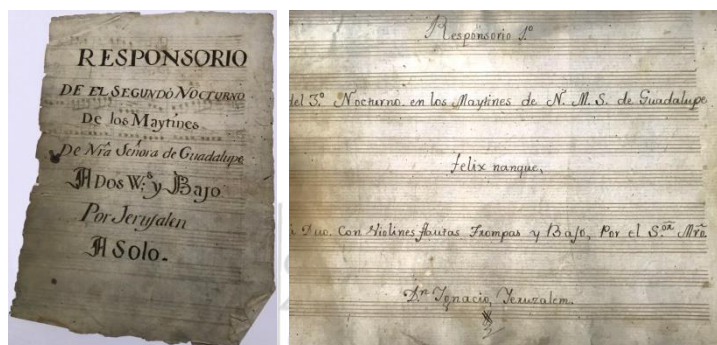 RESPONSORIO
DE EL SEGUNDO NOCTURNO
De los Maytines
De Nrâ Señora de Guadalupe
A Dos W.s y Bajo
Por Jerusalen
A Solo.
Responsorio 1º
del 3º Nocturno. en los Maytines de N. M. S. de Guadalupe
felix nanque,
a Duo. Con Violines flautas Trompas y Bajo, Por el S.or Mrô.
D.n Ignacio, Jeruzalem.